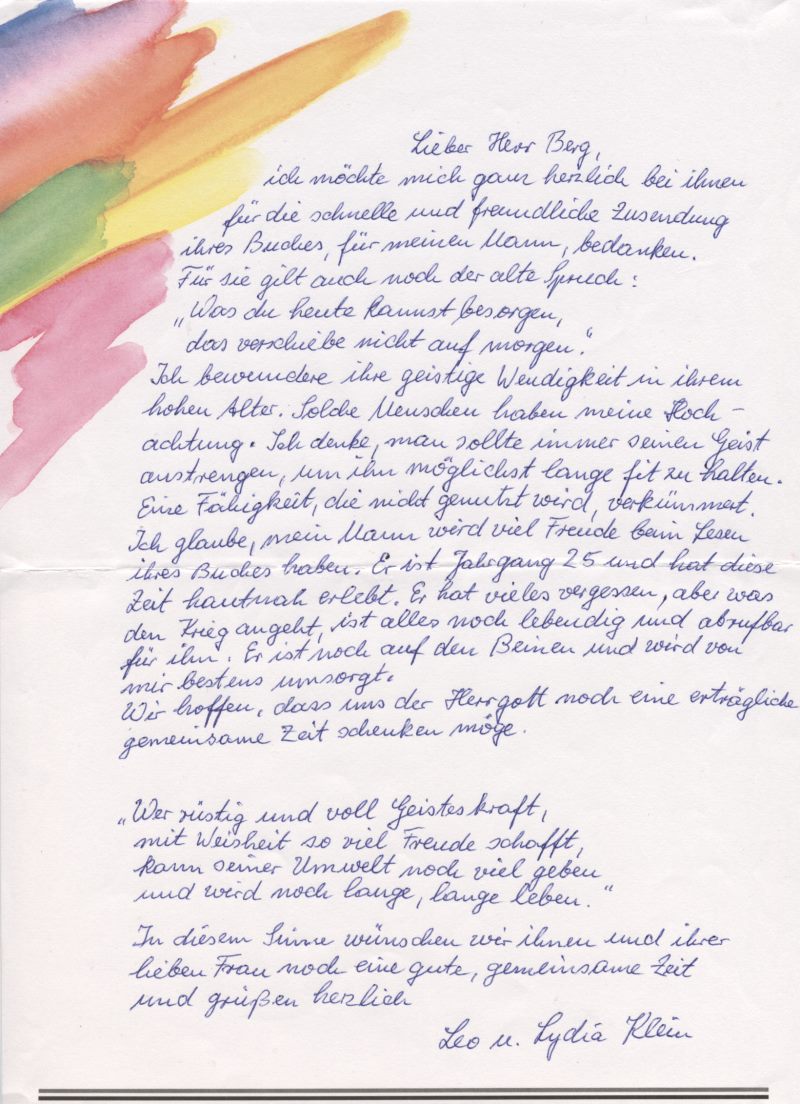 Lieber Herr Berg,
ich möchte mich ganz herzlich bei ihnen
für die schnelle und freundliche Zusendung
ihres Buches, für meinen Mann, bedanken.
Für sie gilt auch noch der alte Spruch:
„Was du heute kannst besorgen,
das verschiebe nicht auf morgen."
Ich bewundere ihre geistige Wendigkeit in ihrem
hohen Alter. Solche Menschen haben meine Hoch-
achtung. Ich denke, man sollte immer seinen Geist
anstrengen, um ihn möglichst lange fit zu halten.
Eine Fähigkeit, die nicht genutzt wird, verkümmert.
Ich glaube, mein Mann wird viel Freude beim Lesen
ihres Buches haben. Er ist Jahrgang 25 und hat diese
Zeit hautnah erlebt. Er hat vieles vergessen, aber was
den Krieg angeht, ist alles noch lebendig und abrufbar
für ihn. Er ist noch auf den Beinen und wird von
mir bestens umsorgt.
Wir hoffen, dass uns der Herrgott noch eine erträgliche
gemeinsame Zeit schenken möge.
„Wer rüstig und voll Geisteskraft,
mit Weisheit so viel Freude schafft,
kann seiner Umwelt noch viel geben
und wird noch lange, lange leben."
In diesem Sinne wünschen wir ihnen und ihrer
lieben Frau noch eine gute, gemeinsame Zeit
und grüßen herzlich
Leo u. Lydia Klein